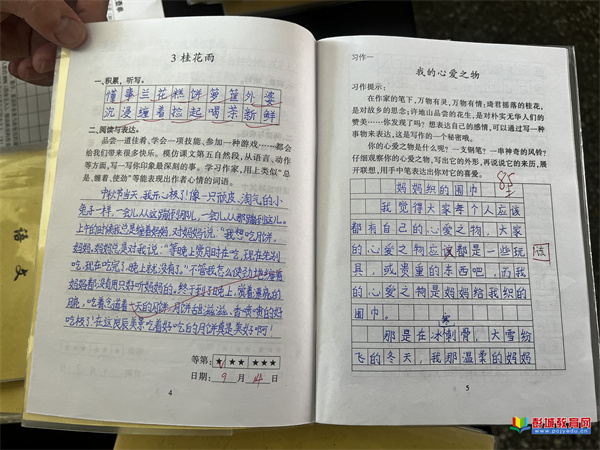 3 桂花雨
一、积累，听写。
懂事兰花糕饼箩筐外婆
沉浸缠着捡起喝茶新鲜
二、阅读与表达。
品尝一道佳肴、学会一项技能、参加一种游戏……都会
给我们带来很多快乐。模仿课文第五自然段，从语言、动作
等方面，写一写你印象最深刻的事。学习作家，用上类似“总
是、缠着、使劲”等能表现出作者心情的词语。
中秋节当天，我开心极了！像一只顽皮、淘气的小
兔子一样，一会儿从这蹦到那儿，一会儿从那蹦到这儿。
上午的时候我总是缠着妈妈，对妈妈说：“我想吃月饼，
妈妈。”妈妈总是对我说：“等晚上赏月时在吃，现在先别
吃，现在吃完了，晚上就没有了。”不管我怎么使劲地缠着
妈妈都没有用只好听妈妈的。终于到了晚上，赏着
晚，吃着
极了！在这良辰美景吃着好吃的月饼真是美好啊！
等第：★ ★★ ★★★
日期：9 月 14 日
4
习作一
我的心爱之物
习作提示：
在作家的笔下，万物有灵，万物有情：琦君摇落的桂花，
是对故乡的思念；许地山品尝的花生，是对朴实无华人们的
赞美……你发现了吗？想表达自己的感情，可以通过写一种
事物来表达，这是写作的一个秘密哦。
你的心爱之物是什么呢？一支钢笔？一串神奇的风铃？
仔细观察你的心爱之物，写出它的外形，再说说它的来历，展
开联想，用手中笔表达出你对它的喜爱。
85
妈妈织的围巾
我觉得大家每个人应该
都有自己的心爱之物，大家
的心爱之物应该都是一些玩 该
具，或贵重的东西吧，而我
的心爱之物是妈妈给我织的
围巾。
寒
那是在冰刺骨，大雪纷
飞的冬天，我那温柔的妈妈
5
语文
彭城教育网
www.pcjyedu.cn